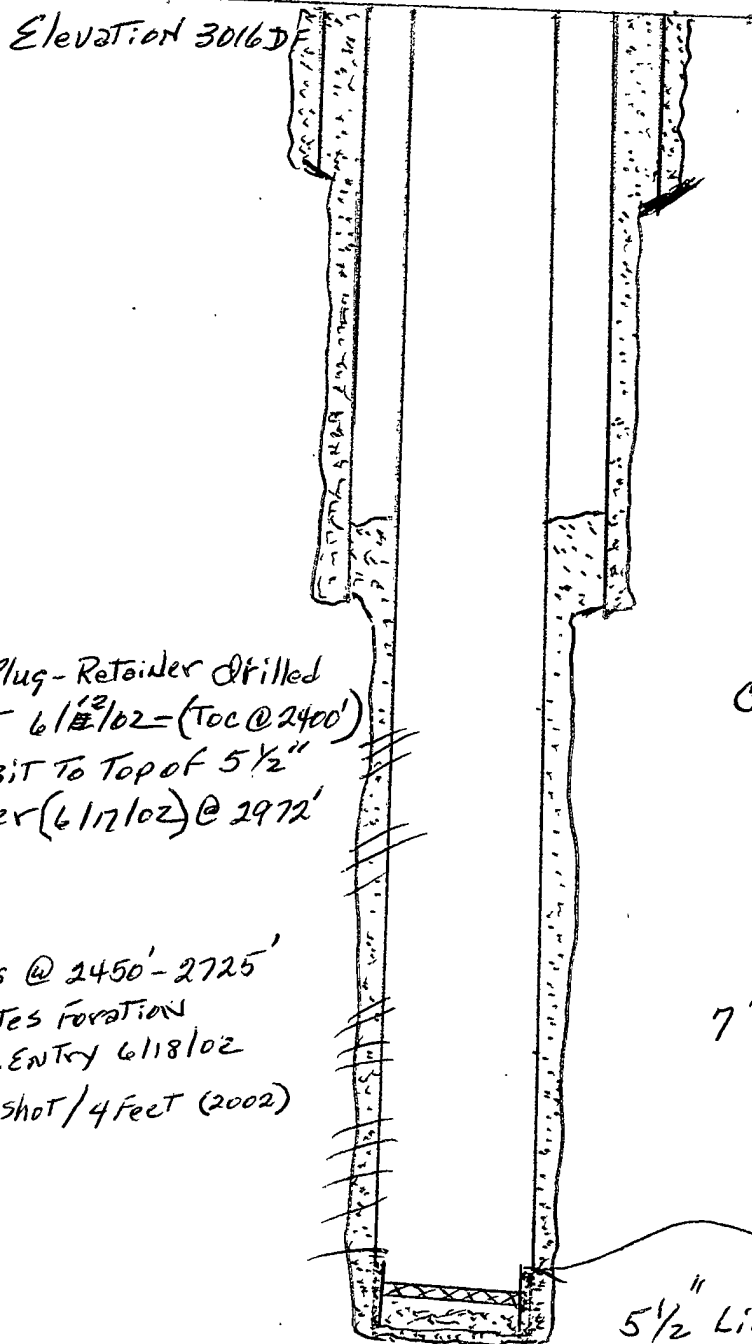 Elevation 3016 DF
Plug-Retainer drilled
T 6/12/02=(TOC @ 2400')
BiT To Top of 5 1/2"
er (6/17/02) @ 2972'
C
s @ 2450'-2725'
Tes ForaTion
.ENTry 6/18/02
shoT/4 FeeT (2002)
7"
5 1/2" Li